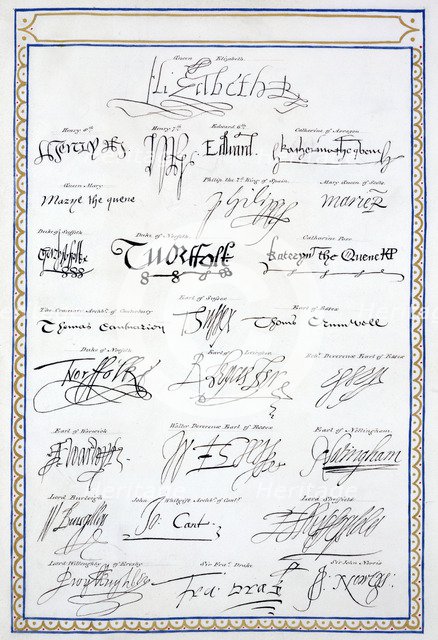 Queen Elizabeth
Elizabeth R
Henry 8th Henry 7th Edward 6th Catharine of Arragon
Henry R HR Edward Katherina the quene
Queen Mary Philip the 2d King of Spain Mary Queen of Scots
Marye the quene Philipp Marie R
Duke of Suffolk Duke of Norfolk Catharine Parr
T Norfolk Kateryn the Quene KP
Tho. Cranmer Archbp. of Canterbury Earl of Sussex Earl of Essex
Thomas Cantuarien Sussex Thom's Crumwell
Duke of Norfolk Earl of Leicester Robt. Devereux Earl of Essex
Norffolk R Leycester Essex
Earl of Warwick Walter Devereux Earl of Essex Earl of Nottingham
A Warwyk W Essex Notingham
Lord Burleigh John Whitgift Archbp. of Cant. Lord Sheffield
W Burghley Jo. Cant Sheffeylde
Lord Willoughby of Eresby Sir Fras. Drake Sir John Norris
Fra Drak J. Norreys.